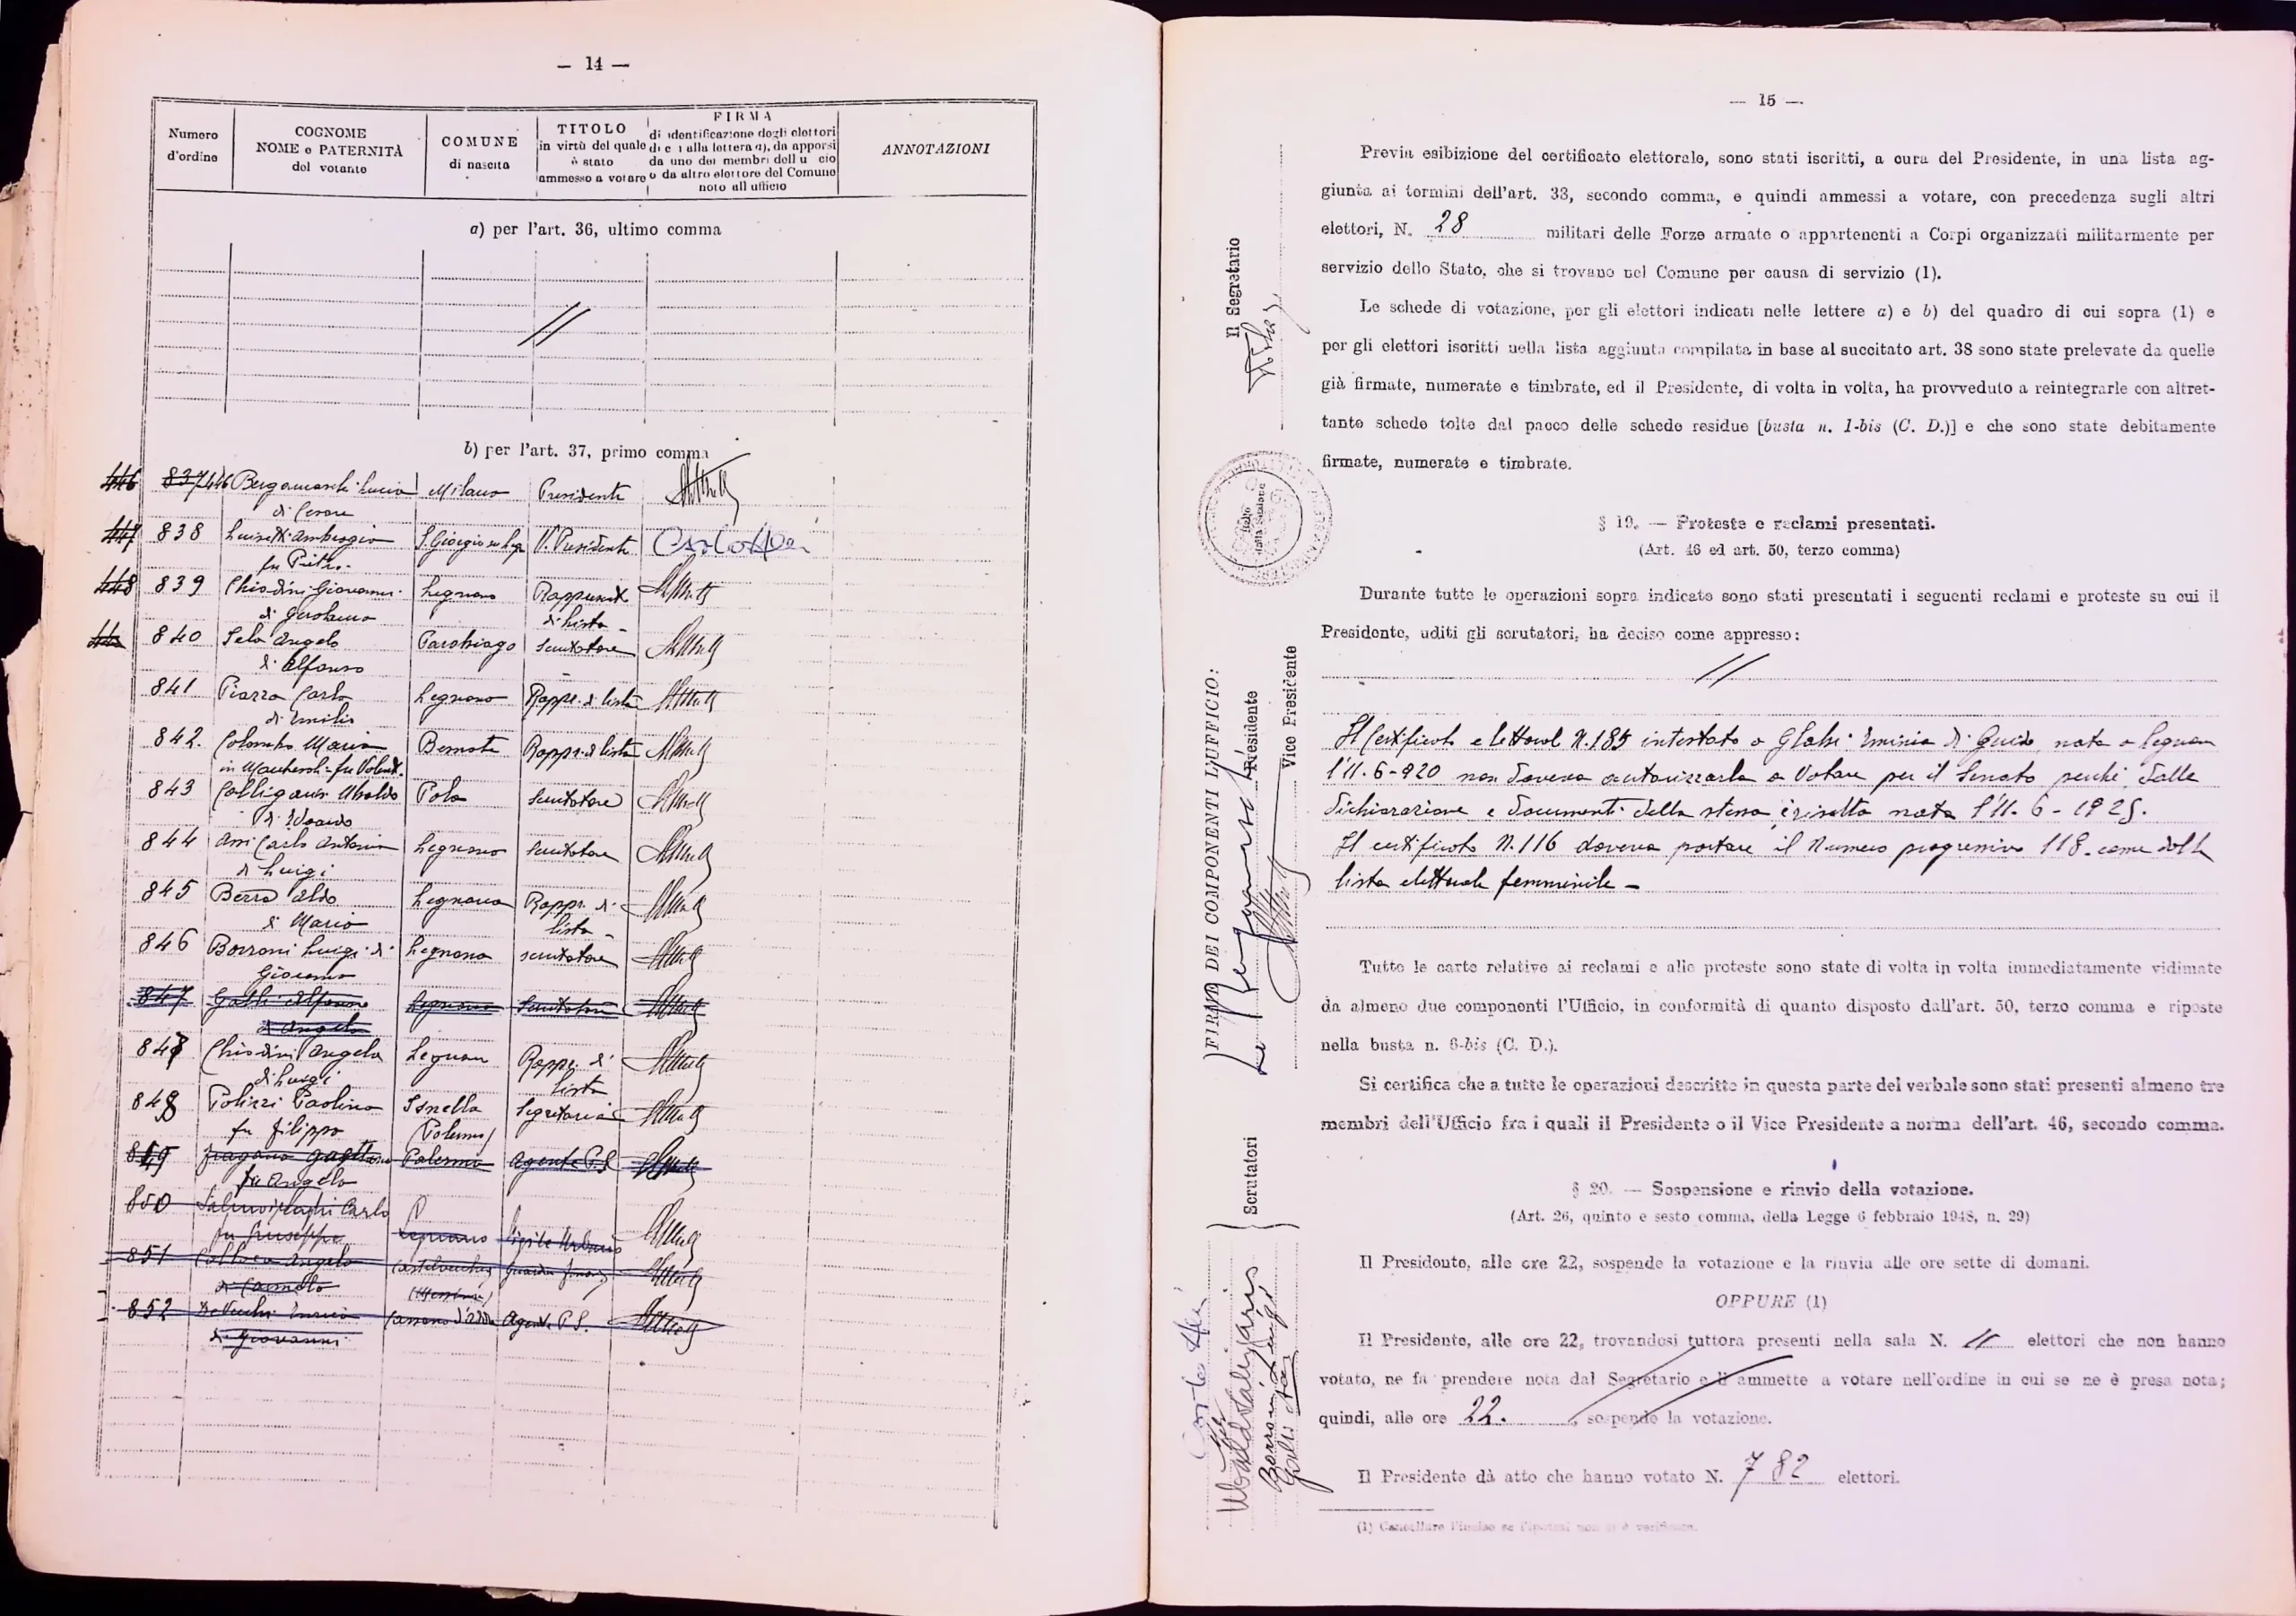 — 14 —
Numero d'ordine
COGNOME NOME e PATERNITÀ del votante
COMUNE di nascita
TITOLO in virtù del quale è stato ammesso a votare
FIRMA
di identificazione degli elettori
di c i alla lettera a), da apporsi
da uno dei membri dell u cio
o da altro elettore del Comune
noto all ufficio
ANNOTAZIONI
a) per l'art. 36, ultimo comma
//
b) per l'art. 37, primo comma
446 837 446 Bergamaschi Lucio Milano Presidente
di Cesare
447 838 Luisetti Ambrogio S. Giorgio su L. V. Presidente
fu Pietro
448 839 Chiodini Giovanni Legnano Rappresent.
di Gerolamo di lista
840 Sela Angelo Parabiago Scrutatore
di Alfonso
841 Piazza Carlo Legnano Rappr. di lista
di Emilio
842. Colombo Maria Bernate Rappr. di lista
in fu
843 Ubaldo Pola Scrutatore
di Edoardo
844 Assi Carlo Antonio Legnano Scrutatore
di Luigi
845 Berra Aldo Legnano Rappr. di
di Mario lista
846 Borroni Luigi di Legnano scrutatore
Giacomo
847 Galli Alfonso Legnano Scrutatore
di Angelo
848 Chiodini Angelo Legnano Rappr. di
di Luigi lista
849 Polizzi Paolina Isnella Segretaria
fu Filippo (Palermo)
849 Gaetano Palermo Agente P.S.
fu Angelo
850 Carlo
fu Giuseppe Legnano Vigile Urbano
851 Angelo Guardia
di Carmelo (Messina)
852 De Vecchi Enrico Cassano d'Adda Agente P.S.
di Giovanni
— 15 —
Previa esibizione del certificato elettorale, sono stati iscritti, a cura del Presidente, in una lista ag-
giunta ai termini dell'art. 33, secondo comma, e quindi ammessi a votare, con precedenza sugli altri
elettori, N. 28 militari delle Forze armate o appartenenti a Corpi organizzati militarmente per
servizio dello Stato, che si trovano nel Comune per causa di servizio (1).
Le schede di votazione, per gli elettori indicati nelle lettere a) e b) del quadro di cui sopra (1) e
per gli elettori iscritti nella lista aggiunta compilata in base al succitato art. 38 sono state prelevate da quelle
già firmate, numerate e timbrate, ed il Presidente, di volta in volta, ha provveduto a reintegrarle con altret-
tante schede tolte dal pacco delle schede residue [busta n. 1-bis (C. D.)] e che sono state debitamente
firmate, numerate e timbrate.
§ 19. — Proteste e reclami presentati.
(Art. 46 ed art. 50, terzo comma)
Durante tutte le operazioni sopra indicate sono stati presentati i seguenti reclami e proteste su cui il
Presidente, uditi gli scrutatori, ha deciso come appresso:
//
Il Certificato elettoral N. 185 intestato a Erminia di Guido, nata a Legnano
l'11-6-920 non doveva autorizzarla a Votare per il Senato perché dalle
dichiarazione e documenti della stessa è risulta nata l'11-6-1925.
Il certificato N. 116 doveva portare il Numero progressivo 118. come dalla
lista elettorale femminile -
Tutte le carte relative ai reclami e alle proteste sono state di volta in volta immediatamente vidimate
da almeno due componenti l'Ufficio, in conformità di quanto disposto dall'art. 50, terzo comma e riposte
nella busta n. 6-bis (C. D.).
Si certifica che a tutte le operazioni descritte in questa parte del verbale sono stati presenti almeno tre
membri dell'Ufficio fra i quali il Presidente o il Vice Presidente a norma dell'art. 46, secondo comma.
§ 20. — Sospensione e rinvio della votazione.
(Art. 26, quinto e sesto comma, della Legge 6 febbraio 1948, n. 29)
Il Presidente, alle ore 22, sospende la votazione e la rinvia alle ore sette di domani.
OPPURE (1)
Il Presidente, alle ore 22, trovandosi tuttora presenti nella sala N. // elettori che non hanno
votato, ne fa prendere nota dal Segretario e li ammette a votare nell'ordine in cui se ne è presa nota;
quindi, alle ore 22. , sospende la votazione.
Il Presidente dà atto che hanno votato N. 782 elettori.
(1) Cancellare l'inciso se l'ipotesi non si è verificata.
FIRME DEI COMPONENTI L'UFFICIO:
Il Segretario
Presidente
Vice Presidente
Scrutatori
Borroni Luigi